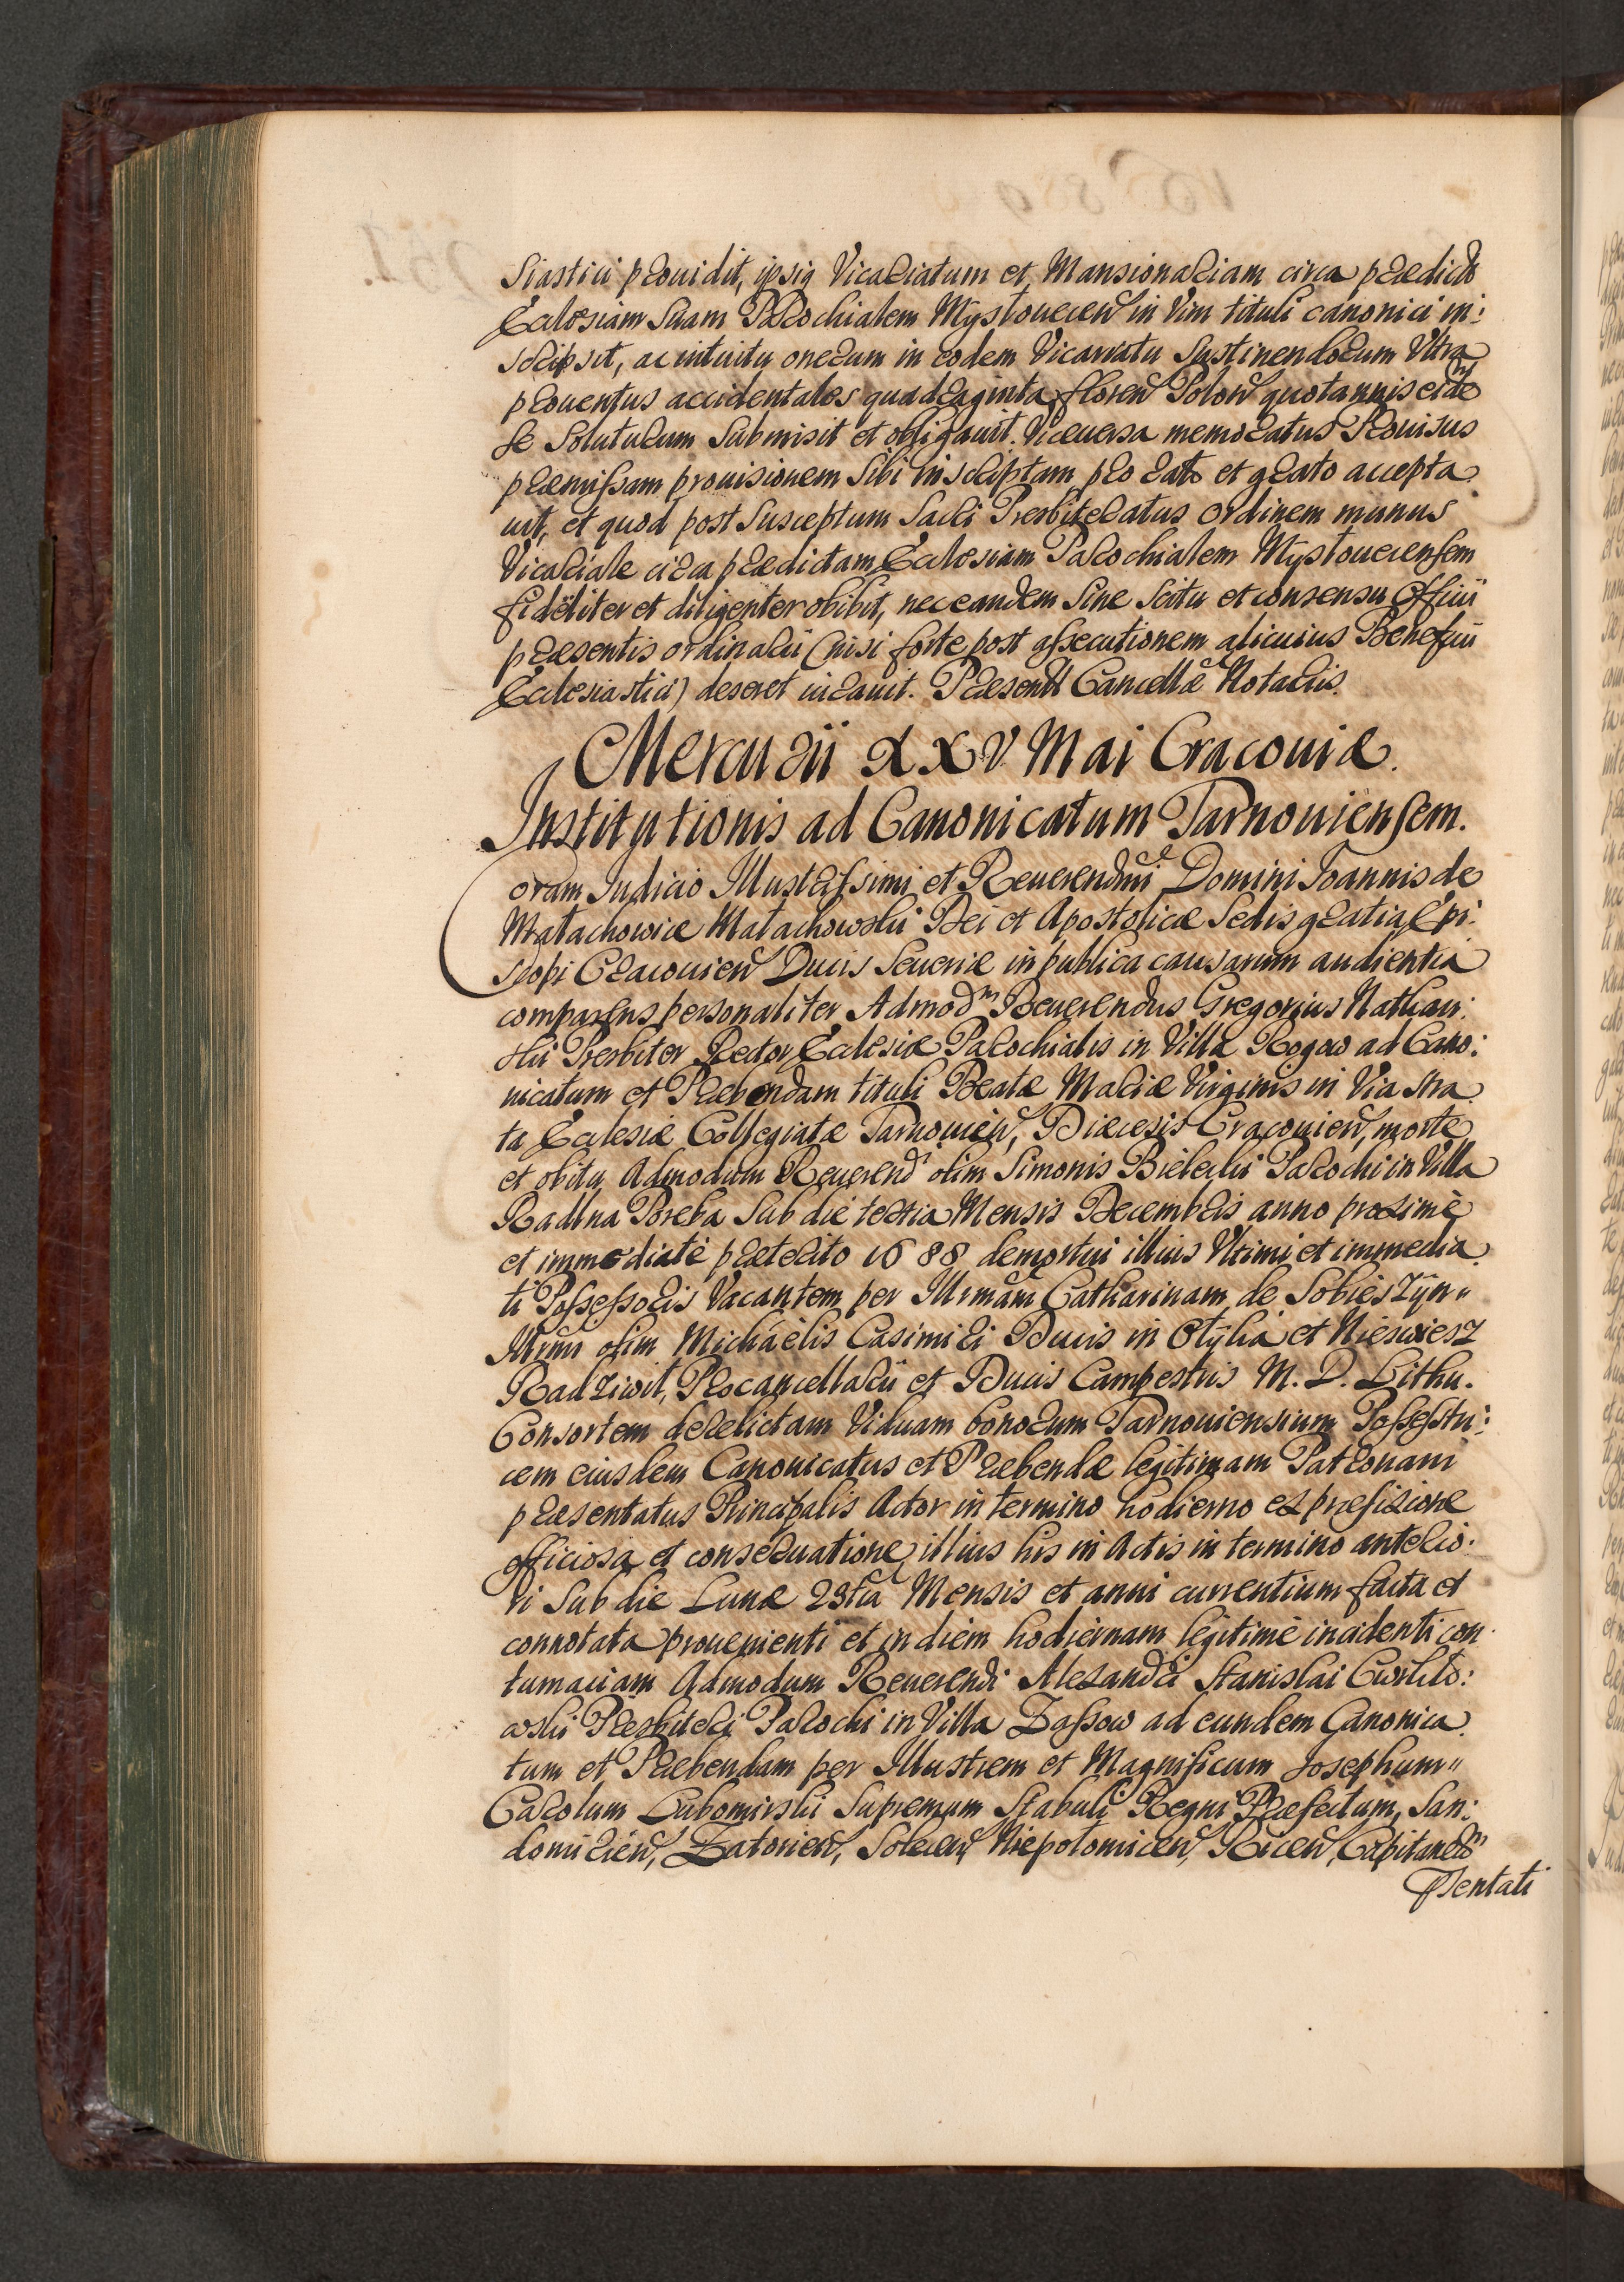 siastici prouidit, ipsiq Vicariatum et Mansionariam circa praedictā
Ecclesiam suam Parochialem Mysłouecen̄ in Vim tituli canonici in:
scripsit, ac intuitu onerum in eodem Vicariatu sustinendorum Vltra
prouentus accidentales quadraginta floren̄ Polon̄ quotannis eidē
se soluturum submisit et obligauit. Viceuersa memoratus Prouisus
praemissam prouisionem sibi inscriptam pro rato et grato accepta
uit, et quod post susceptum sacri Presbiteratus ordinem munus
Vicariale circa praedictam Ecclesiam Parochialem Mysłouecensem
fideliter et diligenter obibit, nec eandem sine scitu et consensu Officii
praesentis ordinarii (nisi forte post assecutionem alicuius Beneficii
Ecclesiastici) deseret iurauit. Praesent̄ Cancellae Notariis.
Mercurii XXV Mai Cracouiae.
Institutionis ad Canonicatum Tarnouiensem.
Coram Iudicio Illustrissimi et Reuerendmi Domini Ioannis de
Małachowice Małachowski Dei et Apostolicae Sedis gratia Epi:
scopi Cracouien̄ Ducis Seueriae in publica causarum audientia
comparens personaliter Admodm Reuerendus Gregorius Nathan:
ski Presbiter Rector Ecclesiae Parochialis in Villa Rogow ad Cano:
nicatum et Praebendam tituli Beatae Mariae Virginis in Via stra
ta Ecclesiae Collegiatae Tarnouien̄, Diaecesis Cracouien̄, morte
et obitu Admodum Reuerendi olim Simonis Bielecki Parochi in Villa
Radlna Poreba sub die tertia Mensis Decembris anno proximè
et immediatè praeterito 1688 demortui illius Vltimi et immedia
ti Possessoris Vacantem per Illrmam Catharinam de Sobieszyn"
Illrmi olim Michaëlis Casimiri Ducis in Ołyka et Nieswiesz
Radziwił, Procancellarii et Ducis Campestris M. D. Lithu.
Consortem derelictam Viduam bonorum Tarnouiensium Possestri:
cem eiusdem Canonicatus et Praebendae legitimam Patronam
praesentatus Principalis Actor in termino hodierno ex praefixione
officiosa et conseruatione illius his in Actis in termino anterio:
ri sub die Lunae 23tia Mensis et anni currentium facta et
connotata prouenienti et in diem hodiernam legitimè incidenti con
tumaciam Admodum Reuerendi Alexandri Stanislai
Presbiteri Parochi in Villa Zassow ad eundem Canonica
tum et Praebendam per Illustrem et Magnificum Josephum"
Carolum Lubomirski Supremum Stabuli Regni Praefectum, San:
domirien̄, Zatorien̄, Solecen̄, Niepołomicen̄, Ricen̄, Capitaneūm
Psentati